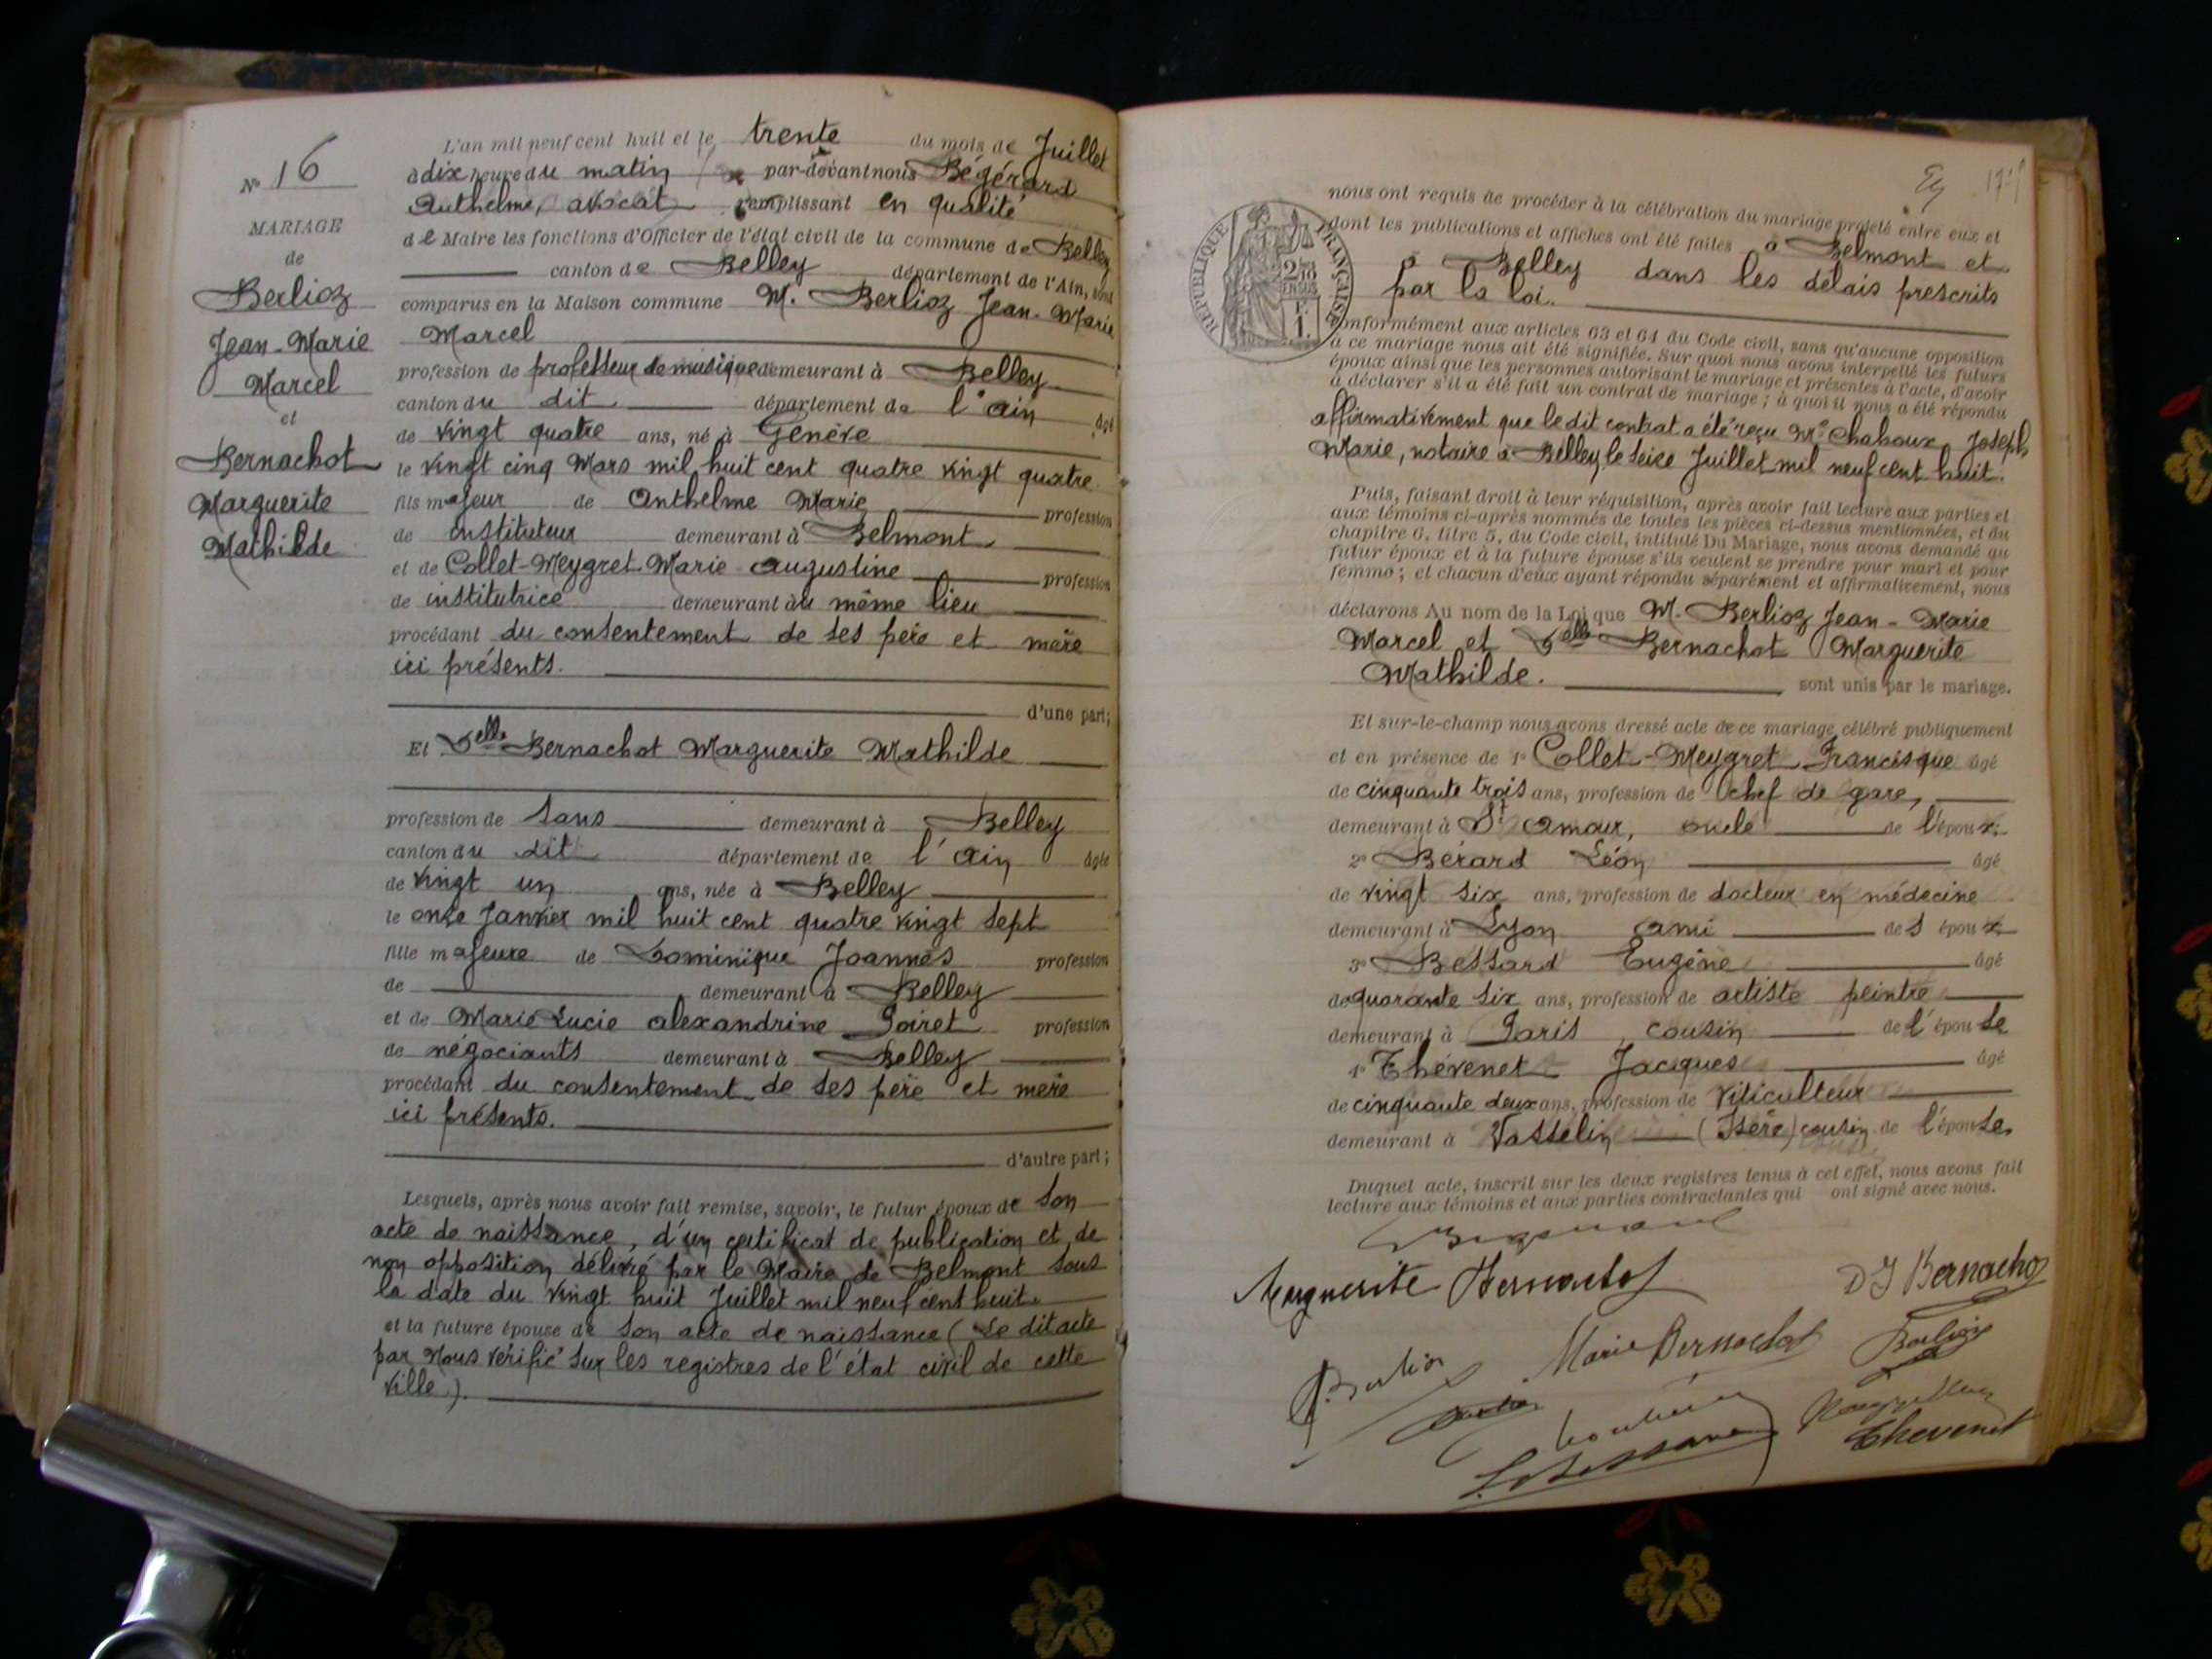 N° 16
MARIAGE
de
Berlioz
Jean-Marie
Marcel
et
Bernachot
Marguerite
Mathilde
L'an mil neuf cent huit et le trente du mois de Juillet
à dix heure du matin par-devant nous Bégérard
Anthelme, avocat remplissant en qualité
de Maire les fonctions d'Officier de l'état civil de la commune de Belley
canton de Belley département de l'Ain, sont
comparus en la Maison commune M. Berlioz Jean-Marie
Marcel
profession de professeur de musique demeurant à Belley
canton du dit département de l'Ain âgé
de vingt quatre ans, né à Genève
le vingt cinq Mars mil huit cent quatre vingt quatre
fils majeur de Anthelme Marie profession
de instituteur demeurant à Belmont
et de Collet-Meygret Marie Augustine profession
de institutrice demeurant au même lieu
procédant du consentement de ses père et mère
ici présents.
d'une part;
Et Delle Bernachot Marguerite Mathilde
profession de sans demeurant à Belley
canton du dit département de l'Ain âgée
de vingt un ans, née à Belley
le onze Janvier mil huit cent quatre vingt sept
fille majeure de Dominique Joannès profession
de demeurant à Belley
et de Marie Lucie Alexandrine Poiret profession
de négociants demeurant à Belley
procédant du consentement de ses père et mère
ici présents.
d'autre part;
Lesquels, après nous avoir fait remise, savoir, le futur époux de son
acte de naissance, d'un certificat de publication et de
non opposition délivré par le Maire de Belmont sous
la date du vingt huit Juillet mil neuf cent huit.
et la future épouse de son acte de naissance (Le dit acte
par Nous vérifié sur les registres de l'état civil de cette
ville).
RÉPUBLIQUE FRANÇAISE
2/10 EN SUS
1 F.
nous ont requis de procéder à la célébration du mariage projeté entre eux et
dont les publications et affiches ont été faites à Belmont et
à Belley dans les délais prescrits
par la loi.
conformément aux articles 63 et 64 du Code civil, sans qu'aucune opposition
à ce mariage nous ait été signifiée. Sur quoi nous avons interpellé les futurs
époux ainsi que les personnes autorisant le mariage et présentes à l'acte, d'avoir
à déclarer s'il a été fait un contrat de mariage; à quoi il nous a été répondu
affirmativement que le dit contrat a été reçu Me Chaboux Joseph
Marie, notaire à Belley, le seize Juillet mil neuf cent huit.
Puis, faisant droit à leur réquisition, après avoir fait lecture aux parties et
aux témoins ci-après nommés de toutes les pièces ci-dessus mentionnées, et du
chapitre 6, titre 5, du Code civil, intitulé Du Mariage, nous avons demandé au
futur époux et à la future épouse s'ils veulent se prendre pour mari et pour
femme; et chacun d'eux ayant répondu séparément et affirmativement, nous
déclarons Au nom de la Loi que M. Berlioz Jean-Marie
Marcel et Delle Bernachot Marguerite
Mathilde. sont unis par le mariage.
Et sur-le-champ nous avons dressé acte de ce mariage célébré publiquement
et en présence de 1° Collet-Meygret Francisque âgé
de cinquante trois ans, profession de chef de gare,
demeurant à St Amour, oncle de l'époux.
2° Bérard Léon âgé
de vingt six ans, profession de docteur en médecine
demeurant à Lyon ami des époux
3° Bessard Eugène âgé
de quarante six ans, profession de artiste peintre
demeurant à Paris, cousin de l'épouse
4° Thévenet Jacques âgé
de cinquante deux ans, profession de viticulteur
demeurant à Vasselin (Isère) cousin de l'épouse
Duquel acte, inscrit sur les deux registres tenus à cet effet, nous avons fait
lecture aux témoins et aux parties contractantes qui ont signé avec nous.
Marguerite Bernachot
DJ Bernachot
Marie Bernachot
Berlioz
Thevenet